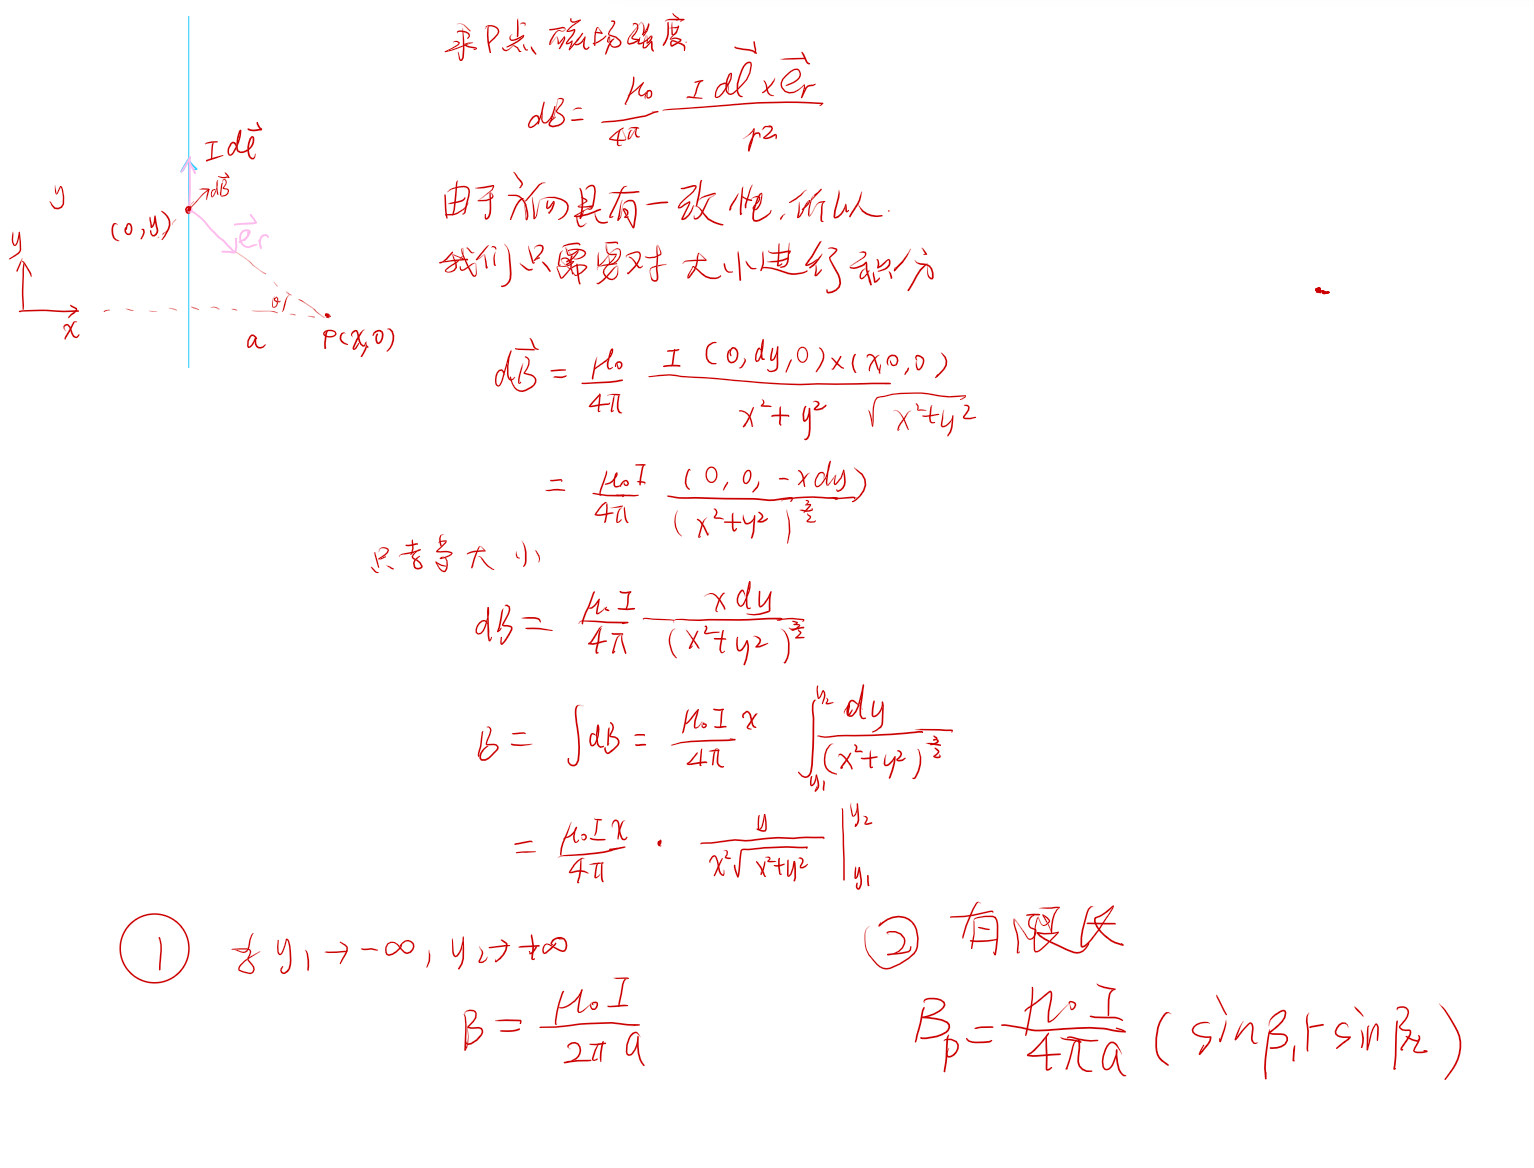 求P点磁场强度
dB = μ₀/4π I dl⃗ × e⃗r / r²
I dl⃗
dB⃗
y
(0, y)
e⃗r
y
x
a
P(x, 0)
由于方向具有一致性,所以
我们只需要对大小进行积分
dB⃗ = μ₀/4π I (0, dy, 0) × (x, 0, 0) / x² + y² √x² + y²
= μ₀I/4π (0, 0, -x dy) / (x² + y²)^3/2
只考虑大小
dB = μ₀I/4π x dy / (x² + y²)^3/2
B = ∫dB = μ₀I/4π x ∫_y₁^y₂ dy / (x² + y²)^3/2
= μ₀Ix/4π · y / x²√x² + y² |_y₁^y₂
① 若 y₁ → -∞, y₂ → +∞
B = μ₀I / 2πa
② 有限长
Bp = μ₀I / 4πa (sinβ₁ + sinβ₂)